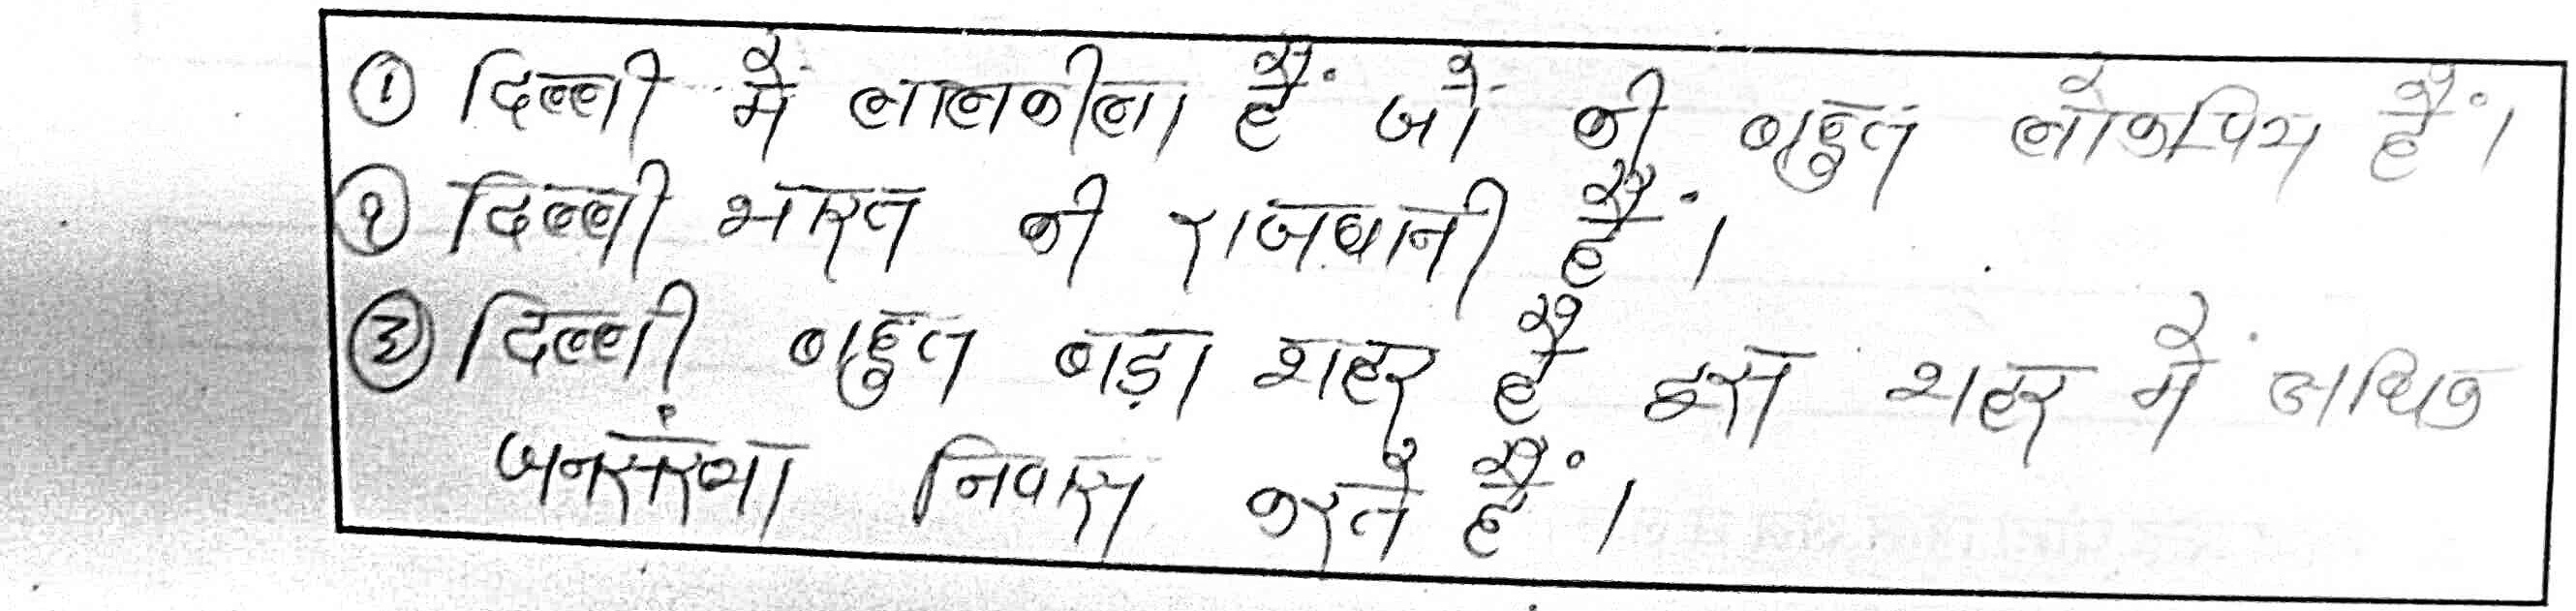 ① दिल्ली में लालकीला हैं जो की बहुत लोकप्रिय हैं।
② दिल्ली भारत की राजधानी हैं।
③ दिल्ली बहुत बड़ा शहर है इस शहर में अधिक
जनसंख्या निवास करते हैं।